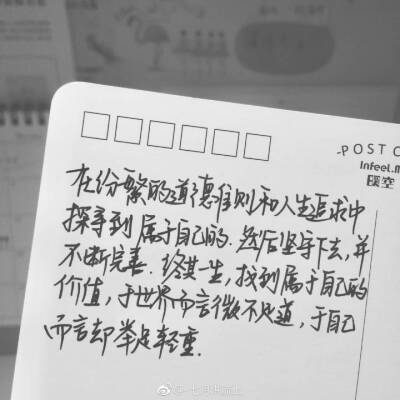 -POST C
Infeel.m
暖空
在份繁的道德准则和人生追求中
探寻到属于自己的.然后坚守下去,并
不断完善.终其一生,找到属于自己的
价值,于世界而言微不足道,于自己
而言却举足轻重.